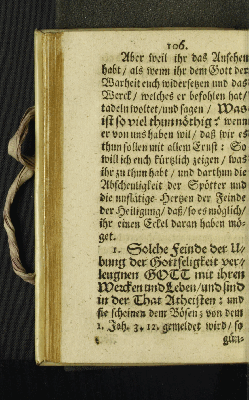 106.
Aber weil ihr das Ansehen
habt / als wenn ihr dem Gott der
Warheit euch widersetzen und das
Werck / welches er befohlen hat /
tadeln woltet / und sagen / Was
ist so viel thun nöthig? wenn
er von uns haben wil / daß wir es
thun sollen mit allem Ernst: So
will ich euch kürtzlich zeigen / was
ihr zu thun habt / und darthun die
Abscheuligkeit der Spötter und
die unflätige Hertzen der Feinde
der Heiligung / daß / so es möglich /
ihr einen Eckel daran haben mö-
get.
1. Solche Feinde der U-
bung der Gottseligkeit ver-
leugnen GOTT mit ihren
Wercken und Leben / und sind
in der That Atheisten: und
sie scheinen dem Bösen / von dem
1. Joh. 3. 12. gemeldet wird / so